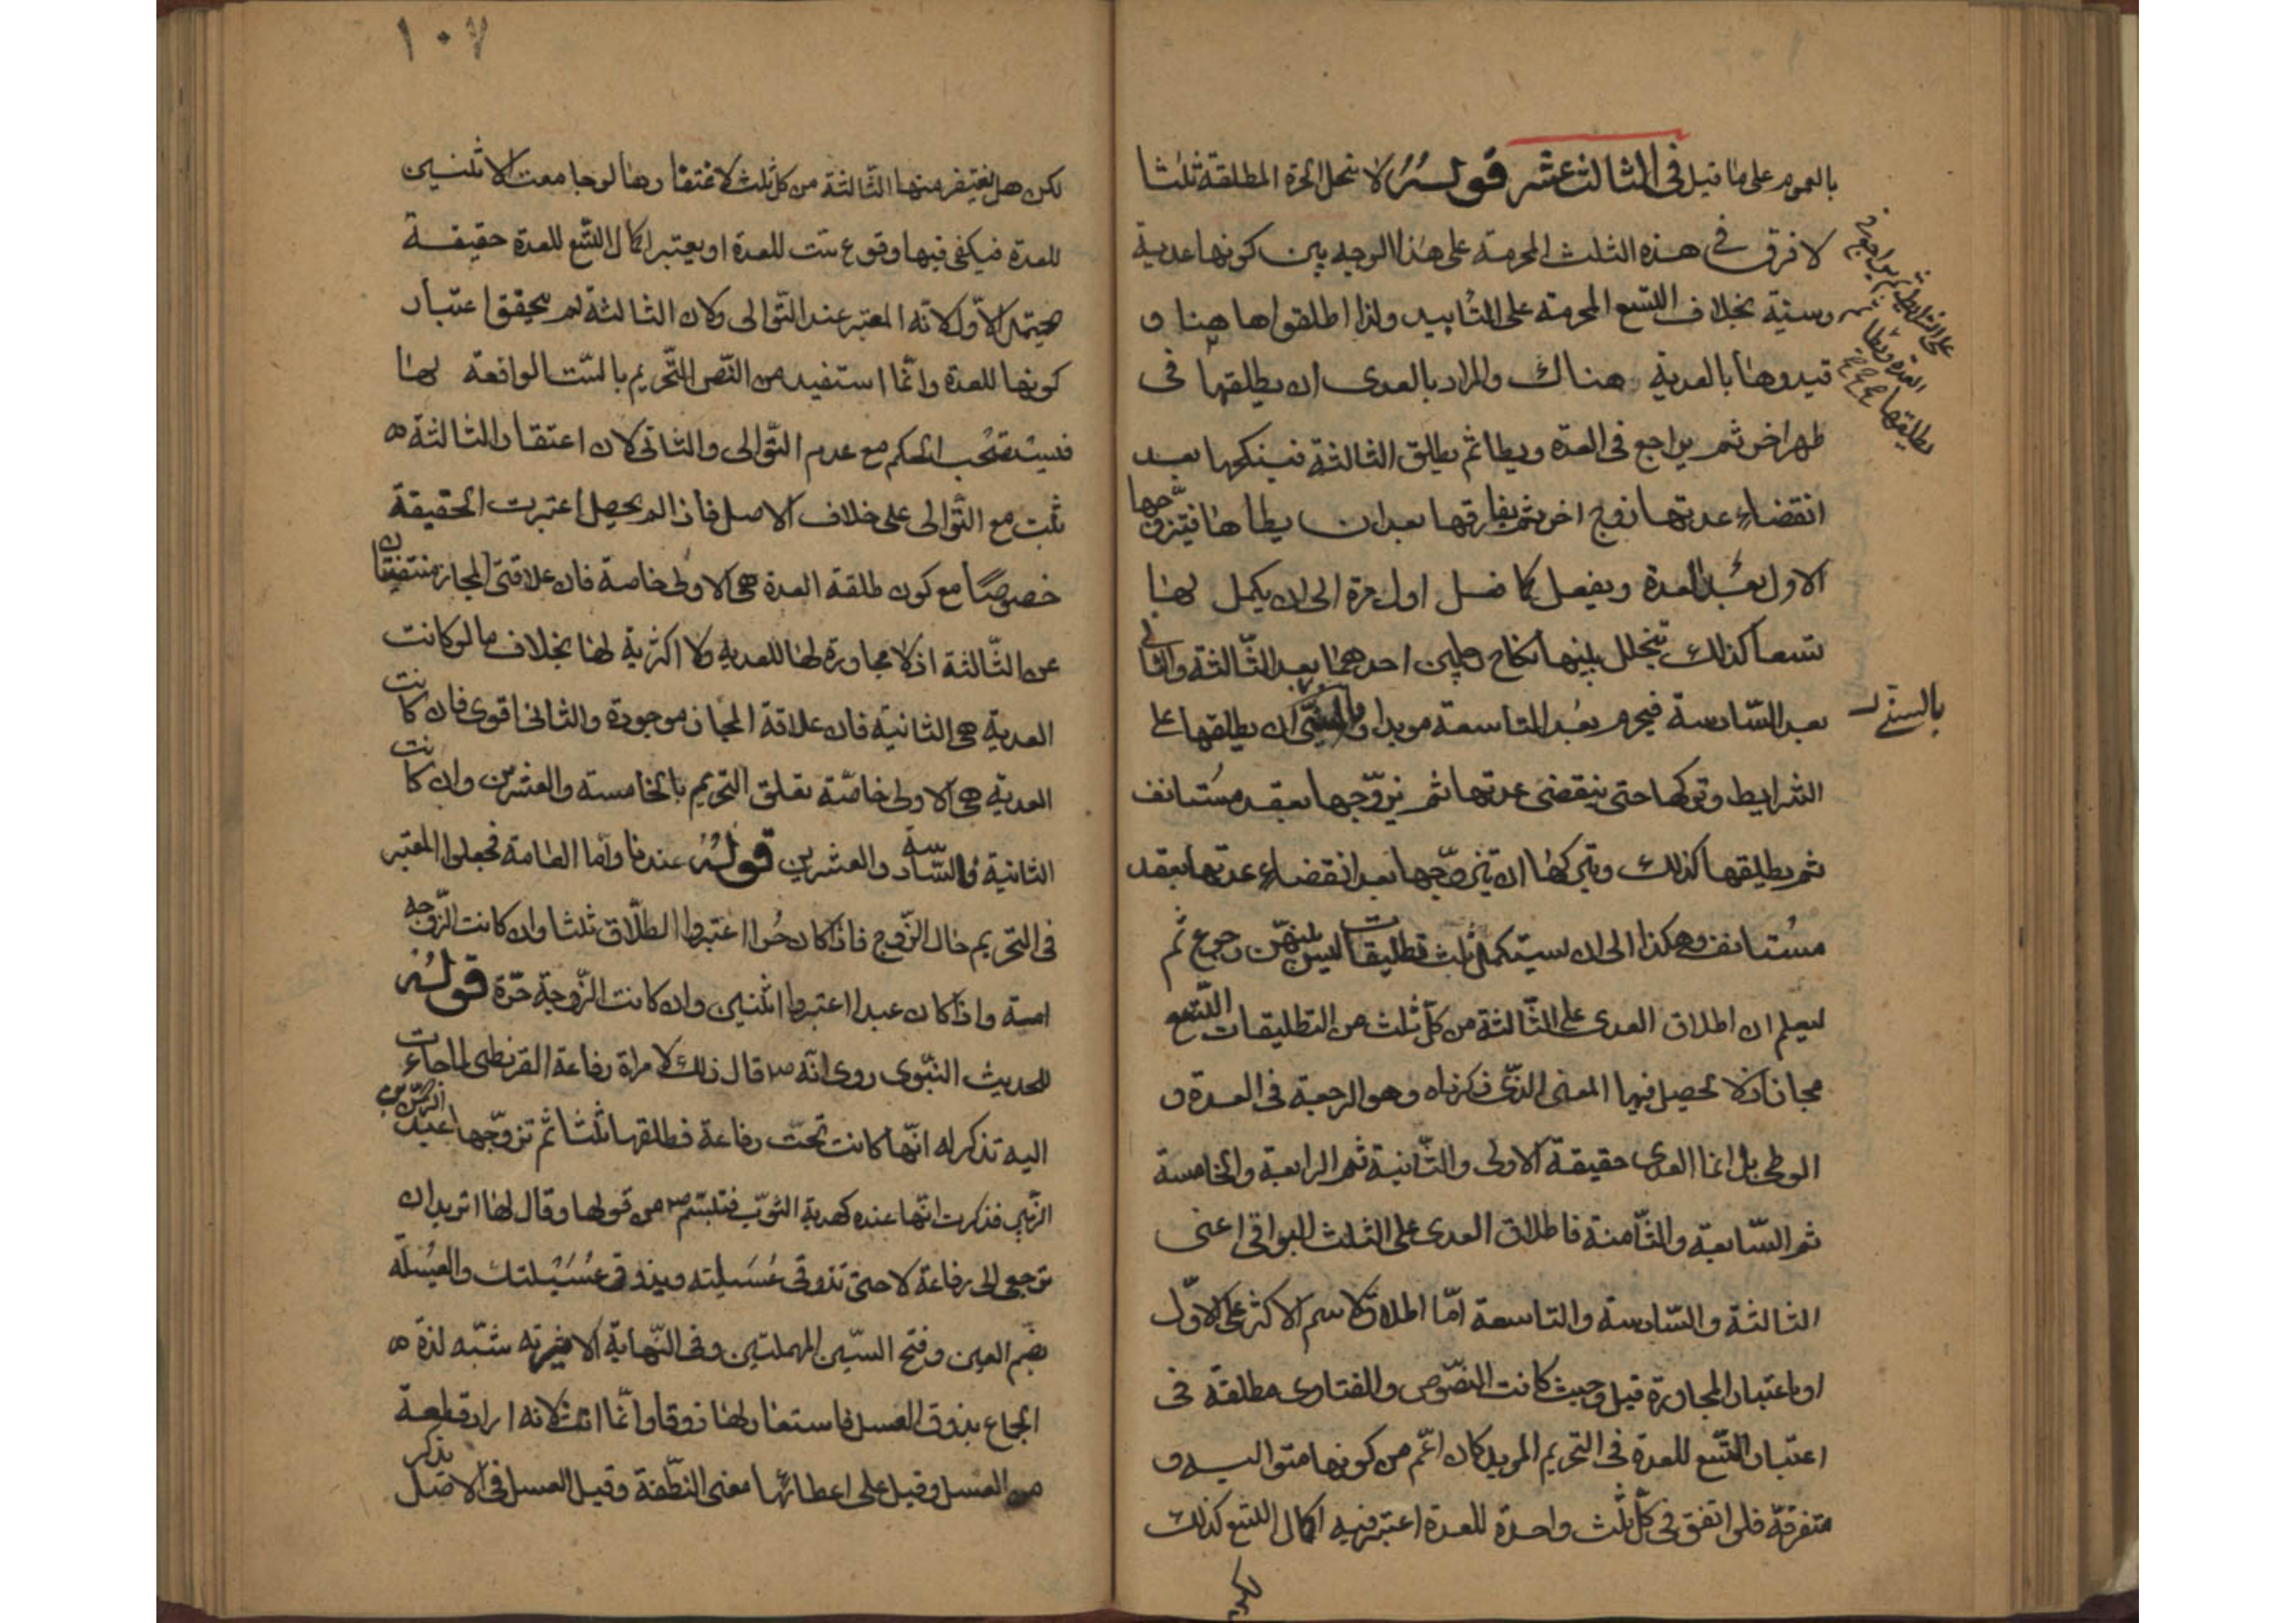 بالعموم على ما قيل في الثالث عشر قوله لا تحل الحرة المطلقة ثلثا
لا فرق في هذه الثلث المحرمة على هذا الوجه بين كونها عدية
وسنية بخلاف التسع المحرمة على التأبيد ولذا اطلقوها هنا و
قيدوها بالعدية هناك والمراد بالعدى ان يطلقها في
على الشرايط ثم يراجع في
العدة ويطأ ثم
يطلقها
طهر اخر ثم يراجع في العدة ويطا ثم يطلق الثالثة فينكحها بعد
انقضاء عدتها زوج اخر ثم يفارقها بعد ان يطاها فيتزوجها
الاول بعد العدة ويفعل كما فعل اول مرة الى ان يكمل لها
تسعا كذلك يتخلل بينها نكاح رجلين احدهما بعد الثالثة والثاني
بعد السادسة فيحرم بعد التاسعة موبدا والسنى ان يطلقها على
بالسنى
الشرايط وتركها حتى ينقضى عدتها ثم يزوجها بعقد مستانف
ثم يطلقها كذلك ويتركها ان يتزوجها بعد انقضاء عدتها بعقد
مستانف وهكذا الى ان يستكمل ثلث تطليقات ليس بينهن رجوع ثم
ليعلم ان اطلاق العدى على الثالثة من كل ثلث من التطليقات التسع
مجاز اذ لا تحصل فيها المعنى الذى ذكرناه وهو الرجعة في العدة و
الوطى بل انما العدى حقيقة الاولى والثانية ثم الرابعة والخامسة
ثم السابعة والثامنة فاطلاق العدى على الثلث البواقى اعنى
الثالثة والسادسة والتاسعة اما اطلاق لاسم الاكثر على الاول
او باعتبار المجاورة قيل وحيث كانت النصوص والفتاوى مطلقة في
اعتبار التسع للعدة في التحريم الموبد كان اعم من كونها متوالية و
متفرقة فلو اتفق في كل ثلث واحدة للعدة اعتبر فيه اكمال التسع كذلك
لكن
١٠٧
لكن هل يغتفر منها الثالثة من كل ثلث لاغتفارها لو جامعت الاثنين
للعدة فيكفى فيها وقوع ست للعدة او يعتبر اكمال التسع للعدة حقيقة
يحتمل الاول لانه المعتبر عند التوالى ولان الثالثة لم يتحقق اعتبار
كونها للعدة وانما استفيد من النص التحريم بالست الواقعة لها
فيستصحب الحكم مع عدم التوالى والثانى لان اعتقار الثالثة
ثبت مع التوالى على خلاف الاصل فاذا لم يحصل اعتبرت الحقيقة
خصوصا مع كون طلقة العدة هى الاولى خاصة فان علاقتى المجاز منتفيتان
عن الثالثة اذ لا مجاورة لها للعدية ولا اكثرية لها بخلاف ما لو كانت
العدية هى الثانية فان علاقة المجاز موجودة والثانى اقوى فان كانت
العدية هى الاولى خاصة تعلق التحريم بالخامسة والعشرين وان كانت
الثانية فالسادسة والعشرين قوله عندنا واما العامة فجعلوا المعتبر
في التحريم حال الزوج فاذا كان حرا اعتبروا الطلاق ثلثا وان كانت الزوجه
امة واذا كان عبدا اعتبروا اثنين وان كانت الزوجة حرة قوله
للحديث النبوى روى انه ص قال ذلك لامراة رفاعة القرظى لما جاءت
اليه تذكر له انها كانت تحت رفاعة فطلقها ثلثا ثم تزوجها عبد الرحمن بن
الزبير فذكرت انها عنده كهدبة الثوب فتبسم ص من قولها وقال لها اتريدان
ترجعى الى رفاعة لا حتى تذوقى عسيلته ويذوق عسيلتك والعسيلة
بضم العين وفتح السين المهملتين وفى النهاية الاثيرية شبه لذة
الجماع بذوق العسل فاستعار لها ذوقا وانما انث لانه اراد قطعة
من العسل وقيل على اعطائها معنى النطفة وقيل العسل في الاصل يذكر